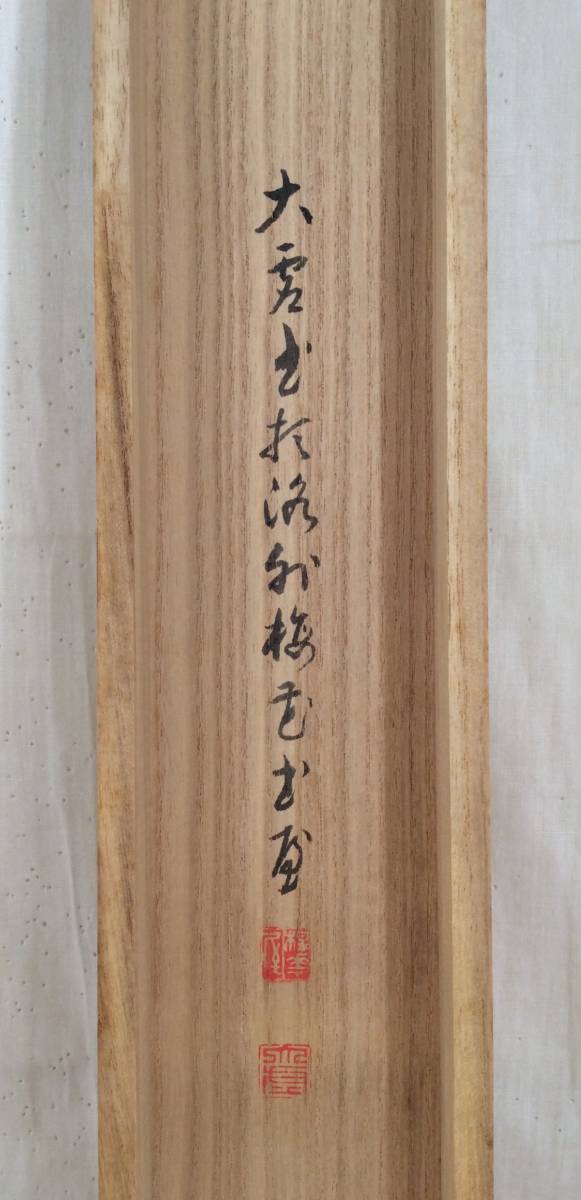 大雲書於洛外梅花書屋